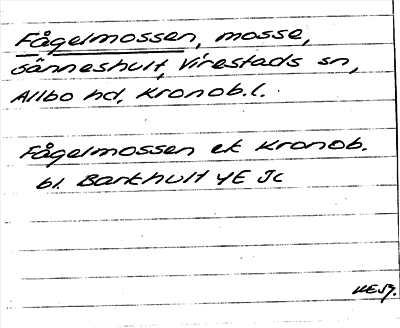 Fågelmossen, mosse,
Sänneshult, Virestads sn,
Allbo hd, Kronob.l.
Fågelmossen ek Kronob.
bl. Barkhult 4E Jc